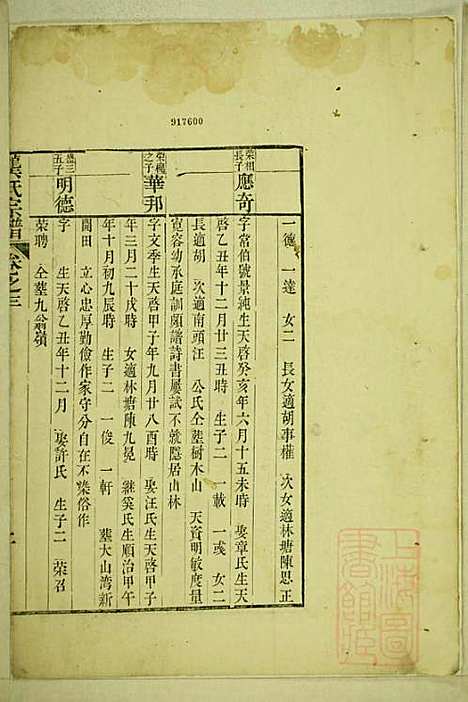 917600
一德 一達 女二 長女適胡事權 次女適林塘陳思正
榮相長子 應奇
字當伯號景純生天啓癸亥年六月十五未時 娶章氏生天
啓乙丑年十二月廿三丑時 生子二 一載 一彧 女二
長適胡 次適南頭汪 公氏仝塟樹木山 天資明敏度量
寬容幼承庭訓頗諳詩書屢試不就隱居山林
之子 華邦
字文季生天啓甲子年九月廿八酉時 娶汪氏生天啓甲子
年三月二十戌時 女適林塘陳九晃 繼奚氏生順治甲午
年十月初九辰時 生子二 一俊 一軒 塟大山湾新
開田 立心忠厚勤儉作家守分自在不染俗作
五子 明德
字 生天啓乙丑年十二月 娶許氏 生子二 榮召
榮聘 仝塟九翁嶺
氏宗譜 卷之三
上海圖書館藏